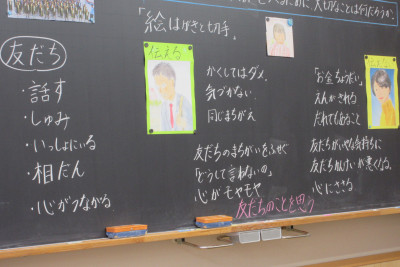 くために、大切なことは何だろうか。
「絵はがきと切手」
友だち
・話す
・しゅみ
・いっしょにいる
・相だん
・心がつながる
伝える
かくしてはダメ。
気づかない
同じまちがえ
友だちのまちがいをふせぐ
「どうして言わないの」
心がモヤモヤ
「お金ちょうだい」
えんかされる
友だちがいやな気持ちに
友だちかんけいが悪くなる。
心にささる
友だちのことを思う